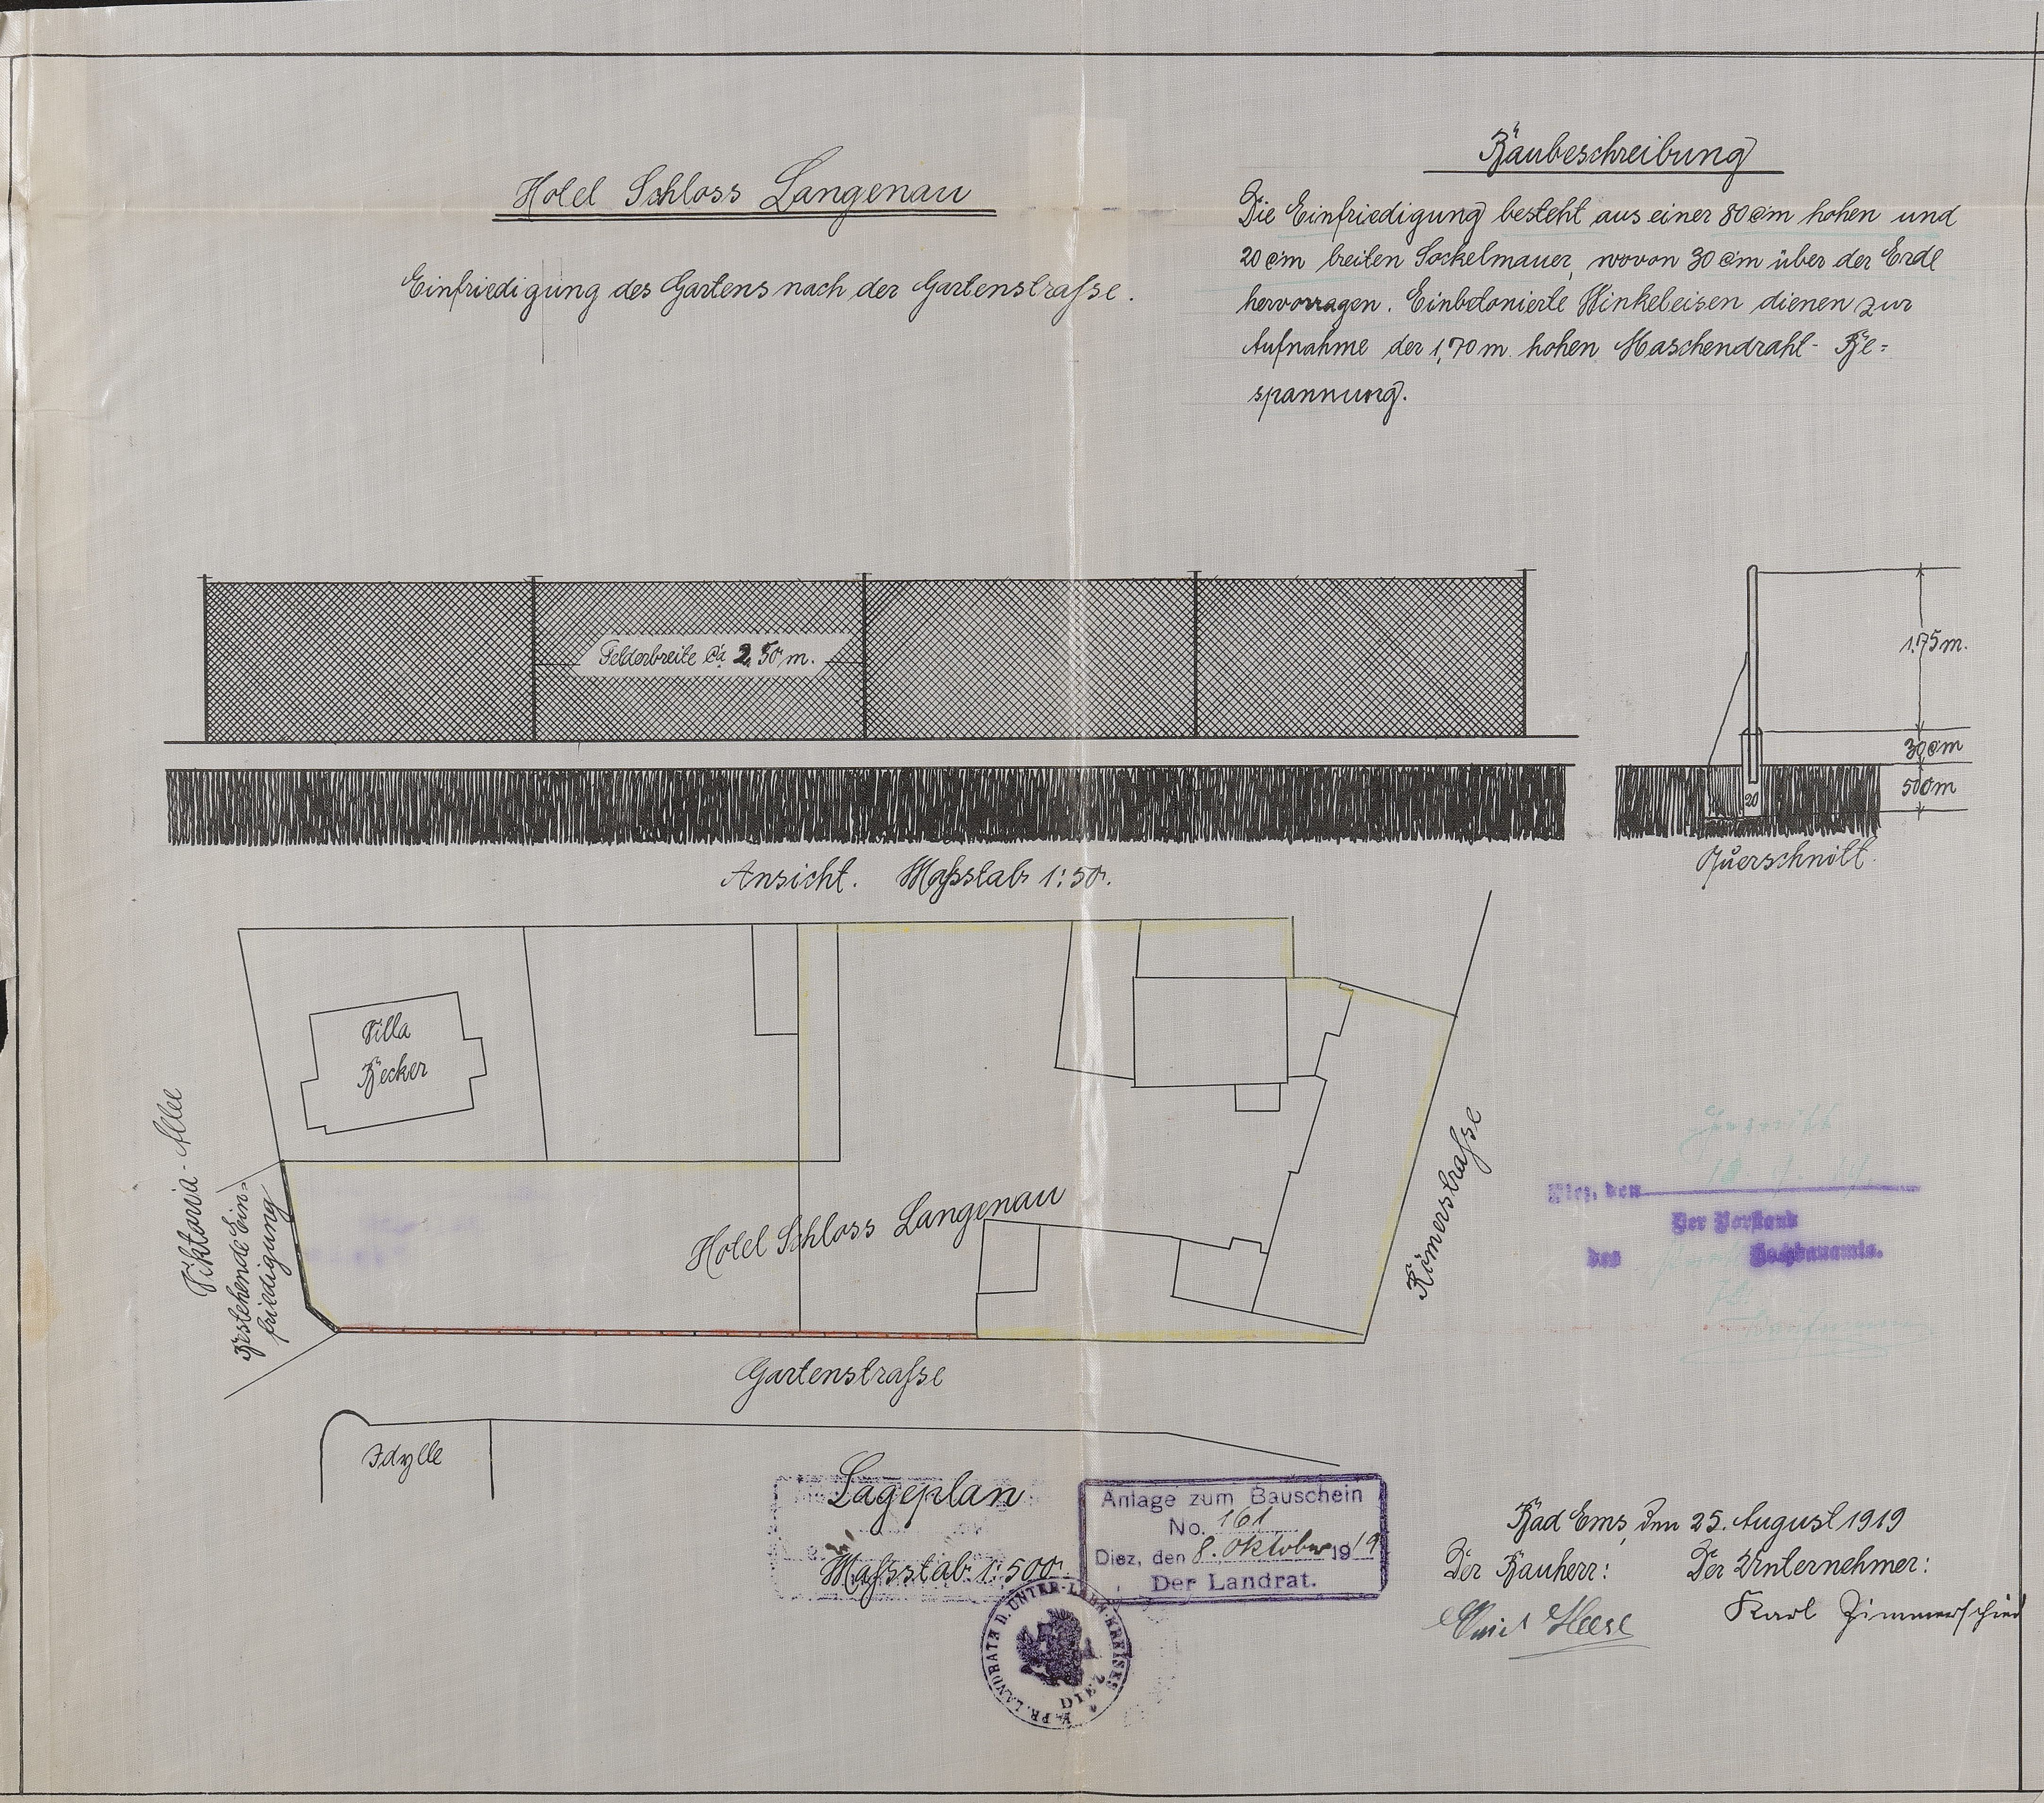 Hotel Schloss Langenau
Einfriedigung des Gartens nach der Gartenstrasse.
Baubeschreibung
Die Einfriedigung besteht aus einer 80 cm hohen und
20 cm breiten Sockelmauer, wovon 30 cm über der Erde
hervorragen. Einbetonierte Winkeleisen dienen zur
Aufnahme der 1,70 m hohen Maschendraht- Be=
spannung.
Felderbreite ca. 2,50 m.
1.75 m.
30 cm
50 cm
20
Ansicht. Maßstab 1:50.
Querschnitt.
Villa
Becker
Viktoria-Allee
Bestehende Ein-
friedigung
Hotel Schloss Langenau
Römerstrasse
Gartenstrasse
Idylle
Lageplan
Maßstab 1:500.
Diez, den
Der Vorstand
des Hochbauamts.
Anlage zum Bauschein
No. 161
Diez, den 8. Oktober 1919
Der Landrat.
K. PR. LANDRATH D. UNTER-LAHN-KREISES
DIEZ
Bad Ems, den 25. August 1919
Der Bauherr: Der Unternehmer:
Heese Karl Zimmerschied